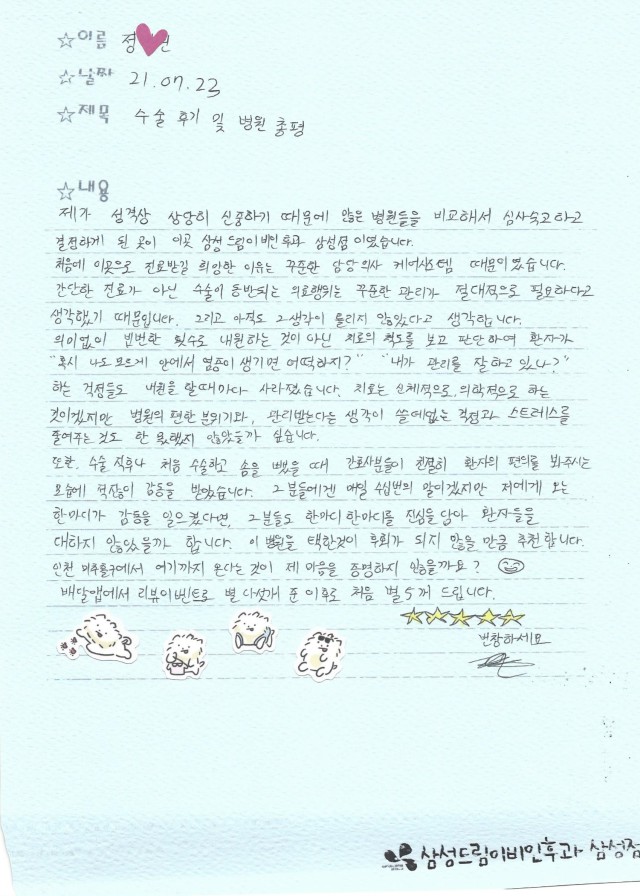 ☆이름 정♥인
☆날짜 21.07.23
☆제목 수술 후기 및 병원 총평
☆내용
제가 성격상 상당히 신중하기 때문에 많은 병원들을 비교해서 심사숙고하고
결정하게 된 곳이 이곳 삼성드림이비인후과 삼성점이었습니다.
처음에 이곳으로 진료받길 희망한 이유는 꾸준한 담당의사 케어시스템 때문이었습니다.
간단한 진료가 아닌 수술이 동반되는 의료행위는 꾸준한 관리가 절대적으로 필요하다고
생각했기 때문입니다. 그리고 아직도 그 생각이 틀리지 않았다고 생각합니다.
의미없이 빈번한 횟수로 내원하는 것이 아닌 치료의 척도를 보고 판단하여 환자가
"혹시 나도 모르게 안에서 염증이 생기면 어떡하지?" "내가 관리를 잘 하고 있나?"
하는 걱정들도 내원을 할 때마다 사라졌습니다. 치료는 신체적으로 의학적으로 하는
것이겠지만 병원의 편한 분위기와, 관리받는다는 생각이 쓸데없는 걱정과 스트레스를
줄여주는 것도 한 몫했지 않았을까 싶습니다.
또한 수술 직후나 처음 수술하고 솜을 뺐을 때 간호사분들이 친절히 환자의 편의를 봐주시는
모습에 적잖이 감동을 받았습니다. 그분들에겐 매일 수십번의 말이겠지만 저에게 오는
한마디가 감동을 일으켰다면, 그분들도 한마디 한마디를 진심을 담아 환자들을
대하지 않았을까 합니다. 이 병원을 택한것이 후회가 되지 않을 만큼 추천합니다.
인천 미추홀구에서 여기까지 온다는 것이 제 마음을 증명하지 않을까요?
배달앱에서 리뷰이벤트로 별 다섯개 준 이후로 처음 별 5개 드립니다.
★★★★★
번창하세요
삼성드림이비인후과 삼성점